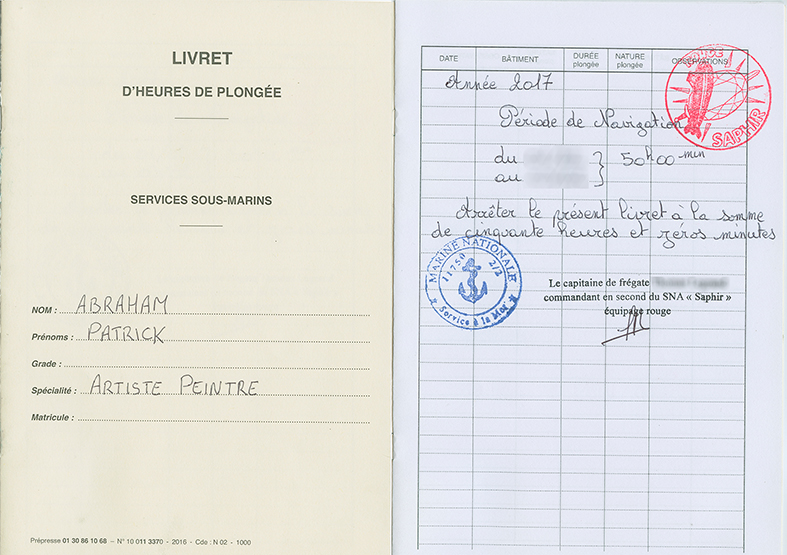 LIVRET
D'HEURES DE PLONGÉE
SERVICES SOUS-MARINS
NOM : ABRAHAM
Prénoms : PATRICK
Grade :
Spécialité : ARTISTE PEINTRE
Matricule :
Prépresse 01 30 86 10 68 – N° 10 011 3370 - 2016 - Cde : N 02 - 1000
DATE BÂTIMENT DURÉE plongée NATURE plongée OBSERVATIONS
SAPHIR
Année 2017
Période de Navigation
du } 50h00 min
au
Arrêter le présent livret à la somme
de cinquante heures et zéros minutes
MARINE NATIONALE
11750 2/2
Service à la Mer
Le capitaine de frégate
commandant en second du SNA « Saphir »
équipage rouge